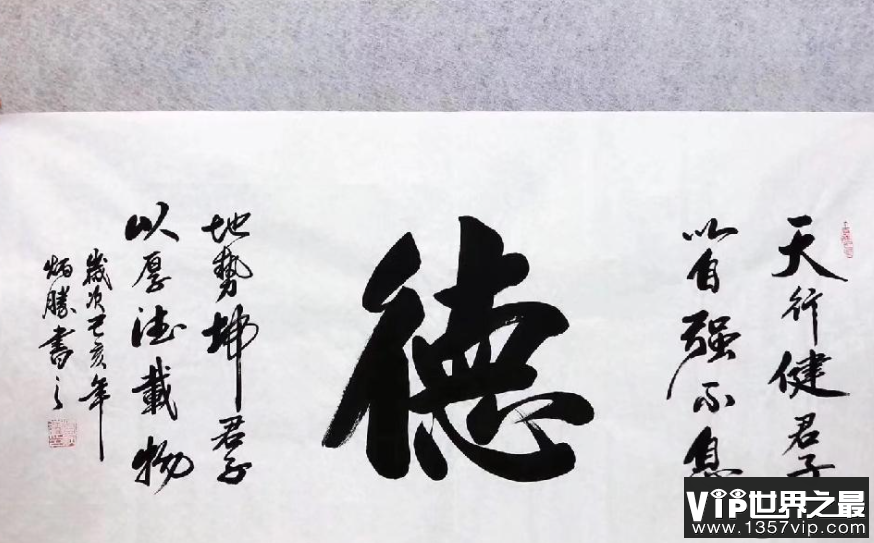 天行健君子
以自强不息
德
地势坤君子
以厚德載物
歲次己亥年
炳勝書之
VIP世界之最
www.1357vip.com